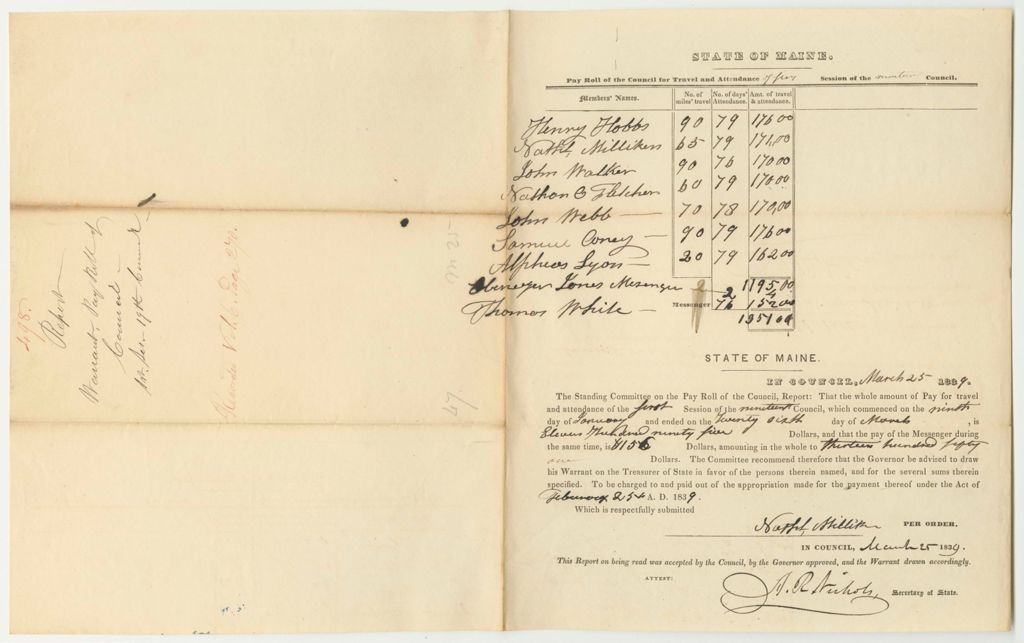 498.
Report
Warrant, Pay Roll of
Council
1st Ses. 19th Council
Vol. 6. Page 270.
m 25
47
STATE OF MAINE.
Pay Roll of the Council for Travel and Attendance Session of the Council.
Members' Names. No. of miles' travel No. of days' Attendance. Amt. of travel & attendance.
Henry Hobbs 90 79 176 00
Nathl. Milliken 65 79 171,00
John Walker 90 76 170 00
Nathan C Fletcher 60 79 170 00
John Webb — 70 78 170,00
Samuel Coney — 90 79 176 00
Alpheus Lyon — 20 79 162 00
1195 00
Ebenezer Jones Mesenger 2 2 4
Thomas White — Messenger 76 152 00
1351 00
STATE OF MAINE.
IN COUNCIL, March 25 1839.
The Standing Committee on the Pay Roll of the Council, Report: That the whole amount of Pay for travel
and attendance of the first Session of the nineteenth Council, which commenced on the ninth
day of January and ended on the Twenty sixth day of March, is
Eleven Hundred ninety five Dollars, and that the pay of the Messenger during
the same time, is $156 Dollars, amounting in the whole to thirteen hundred fifty
one Dollars. The Committee recommend therefore that the Governor be advised to draw
his Warrant on the Treasurer of State in favor of the persons therein named, and for the several sums therein
specified. To be charged to and paid out of the appropriation made for the payment thereof under the Act of
February 25th A. D. 1839.
Which is respectfully submitted
Nathl. Milliken PER ORDER.
IN COUNCIL, March 25 1839.
This Report on being read was accepted by the Council, by the Governor approved, and the Warrant drawn accordingly.
ATTEST:
A. R. Nichols, Secretary of State.